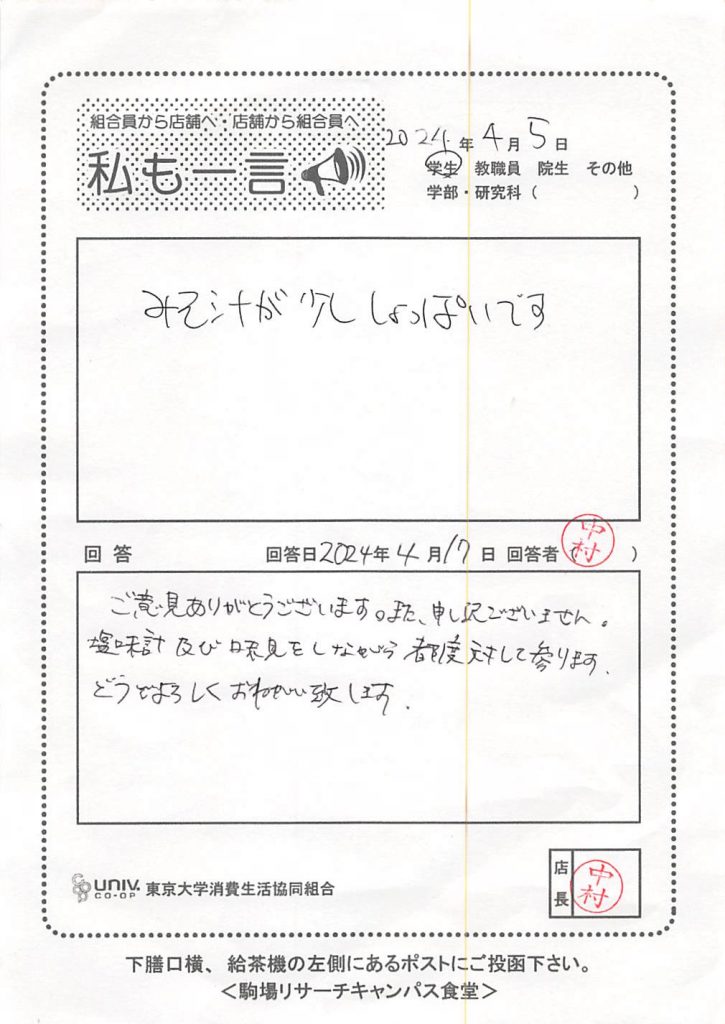 組合員から店舗へ 店舗から組合員へ
私も一言
2024年4月5日
学生 教職員 院生 その他
学部・研究科( )
みそ汁が少ししょっぱいです
回答 回答日2024年4月17日 回答者 中村 )
ご意見ありがとうございます。また、申し訳ございません。
塩味計及び味見をしながら都度対して参ります.
どうぞよろしくおねがい致します.
UNIV. CO-OP 東京大学消費生活協同組合
店長 中村
下膳口横、給茶機の左側にあるポストにご投函下さい。
<駒場リサーチキャンパス食堂>